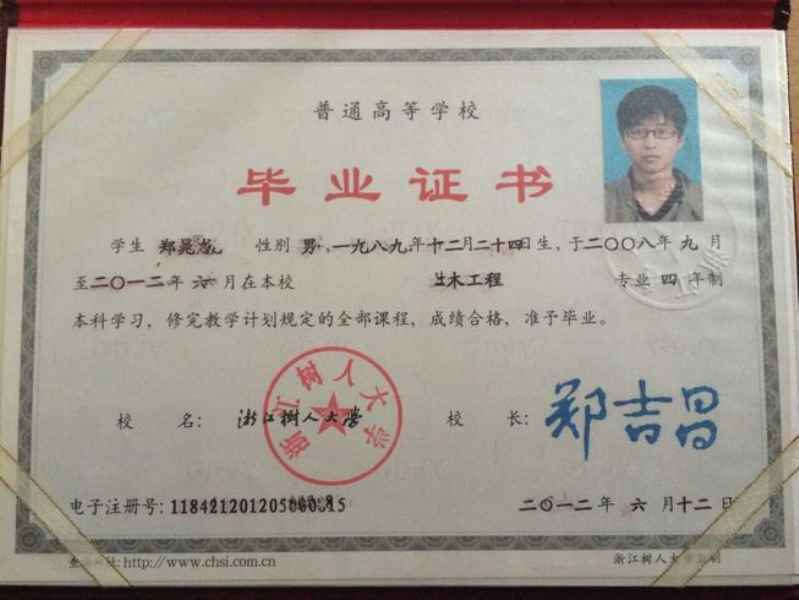 普通高等学校
毕业证书
学生 郑晃 性别 男，一九八九年十二月二十四日生，于二〇〇八年九月
至二〇一二年六月在本校 土木工程 专业四年制
本科学习，修完教学计划规定的全部课程，成绩合格，准予毕业。
浙江树人大学
校 名：浙江树人大学 校 长：郑吉昌
电子注册号： 二〇一二年六月十二日
网址:http://www.chsi.com.cn 浙江树人大学